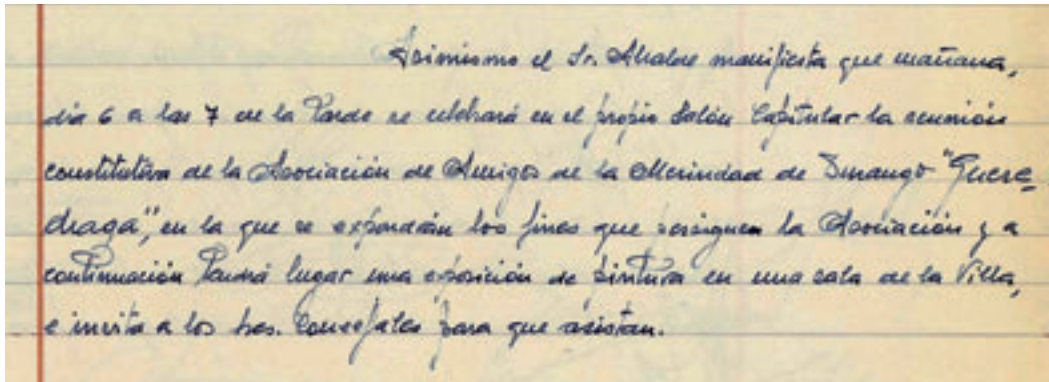 Asimismo el Sr. Alcalde manifiesta que mañana,
día 6 a las 7 de la Tarde se celebrará en el propio Salón Capitular la reunión
constitutiva de la Asociación de Amigos de la Merindad de Durango "Guere-
diaga", en la que se expondrán los fines que persiguen la Asociación y a
continuación Tendrá lugar una exposición de pintura en una sala de la Villa,
e invita a los Sres. Concejales para que asistan.